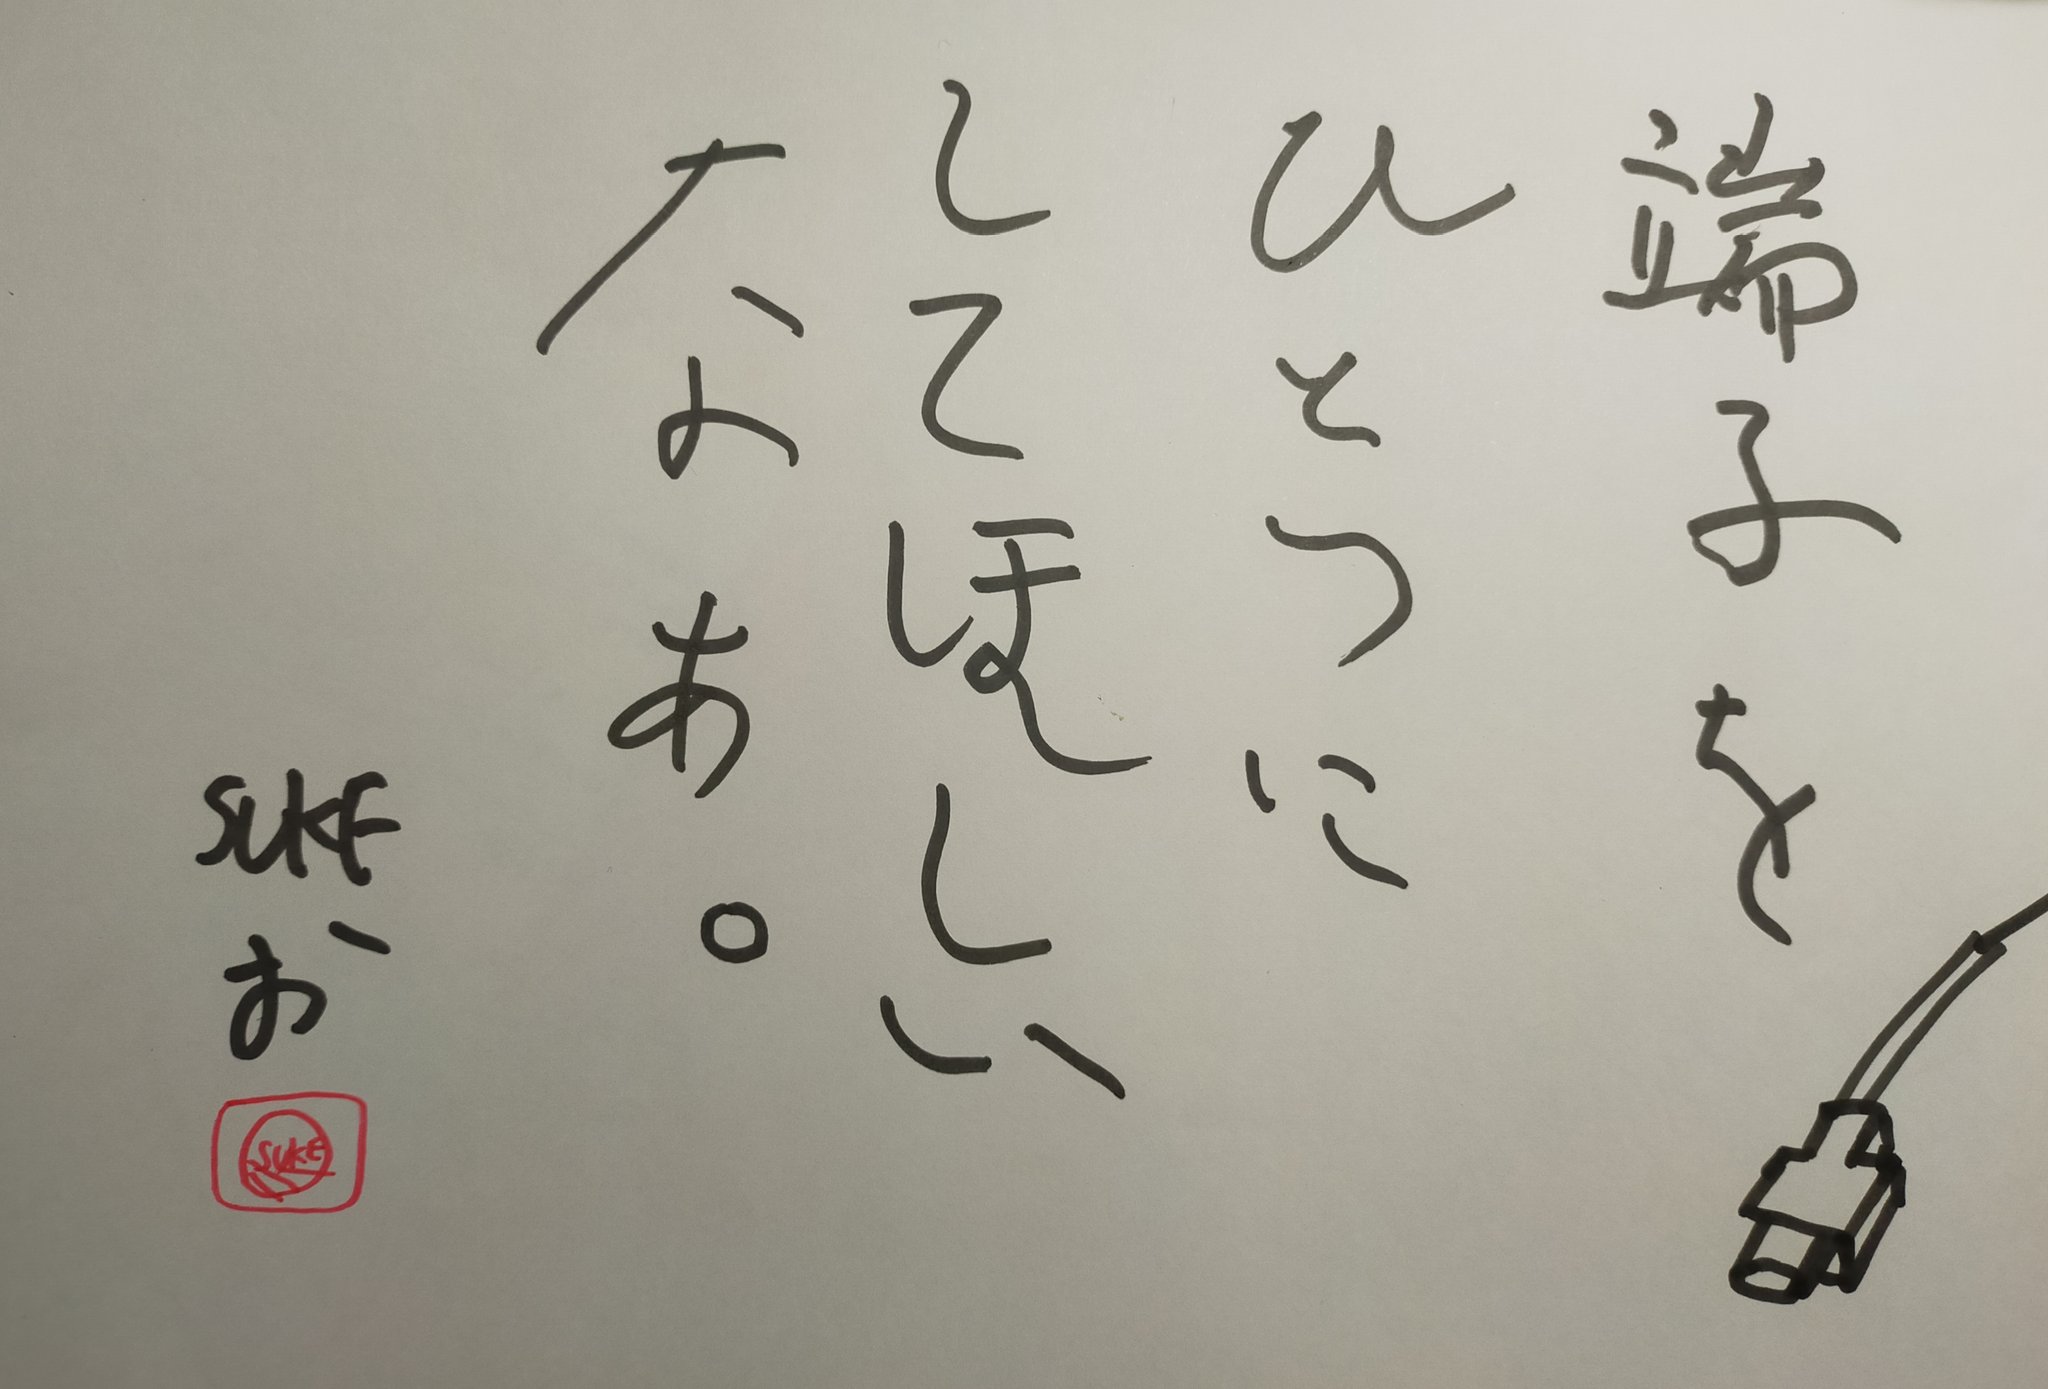 端子を
ひとつに
してほしい
なあ。
SUKE
お
SUKE